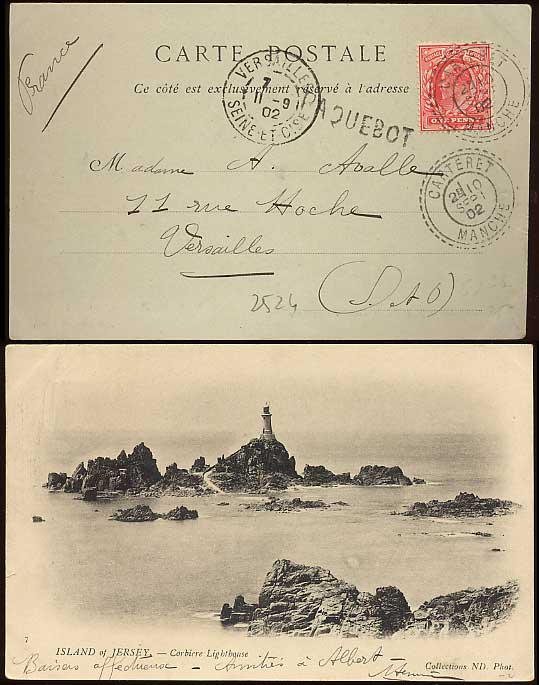 France
CARTE POSTALE
Ce côté est exclusivement réservé à l'adresse
VERSAILLES
7
11 -9
02
SEINE-ET-OISE
PAQUEBOT
ONE PENNY
MANCHE
02
CARTERET
10
SEPT
02
MANCHE
Madame A. Avalle
11 rue Hoche
Versailles
(S. et O)
2524
7
ISLAND of JERSEY. — Corbière Lighthouse
Collections ND. Phot.
Baisers affectueux — Amitiés à Albert